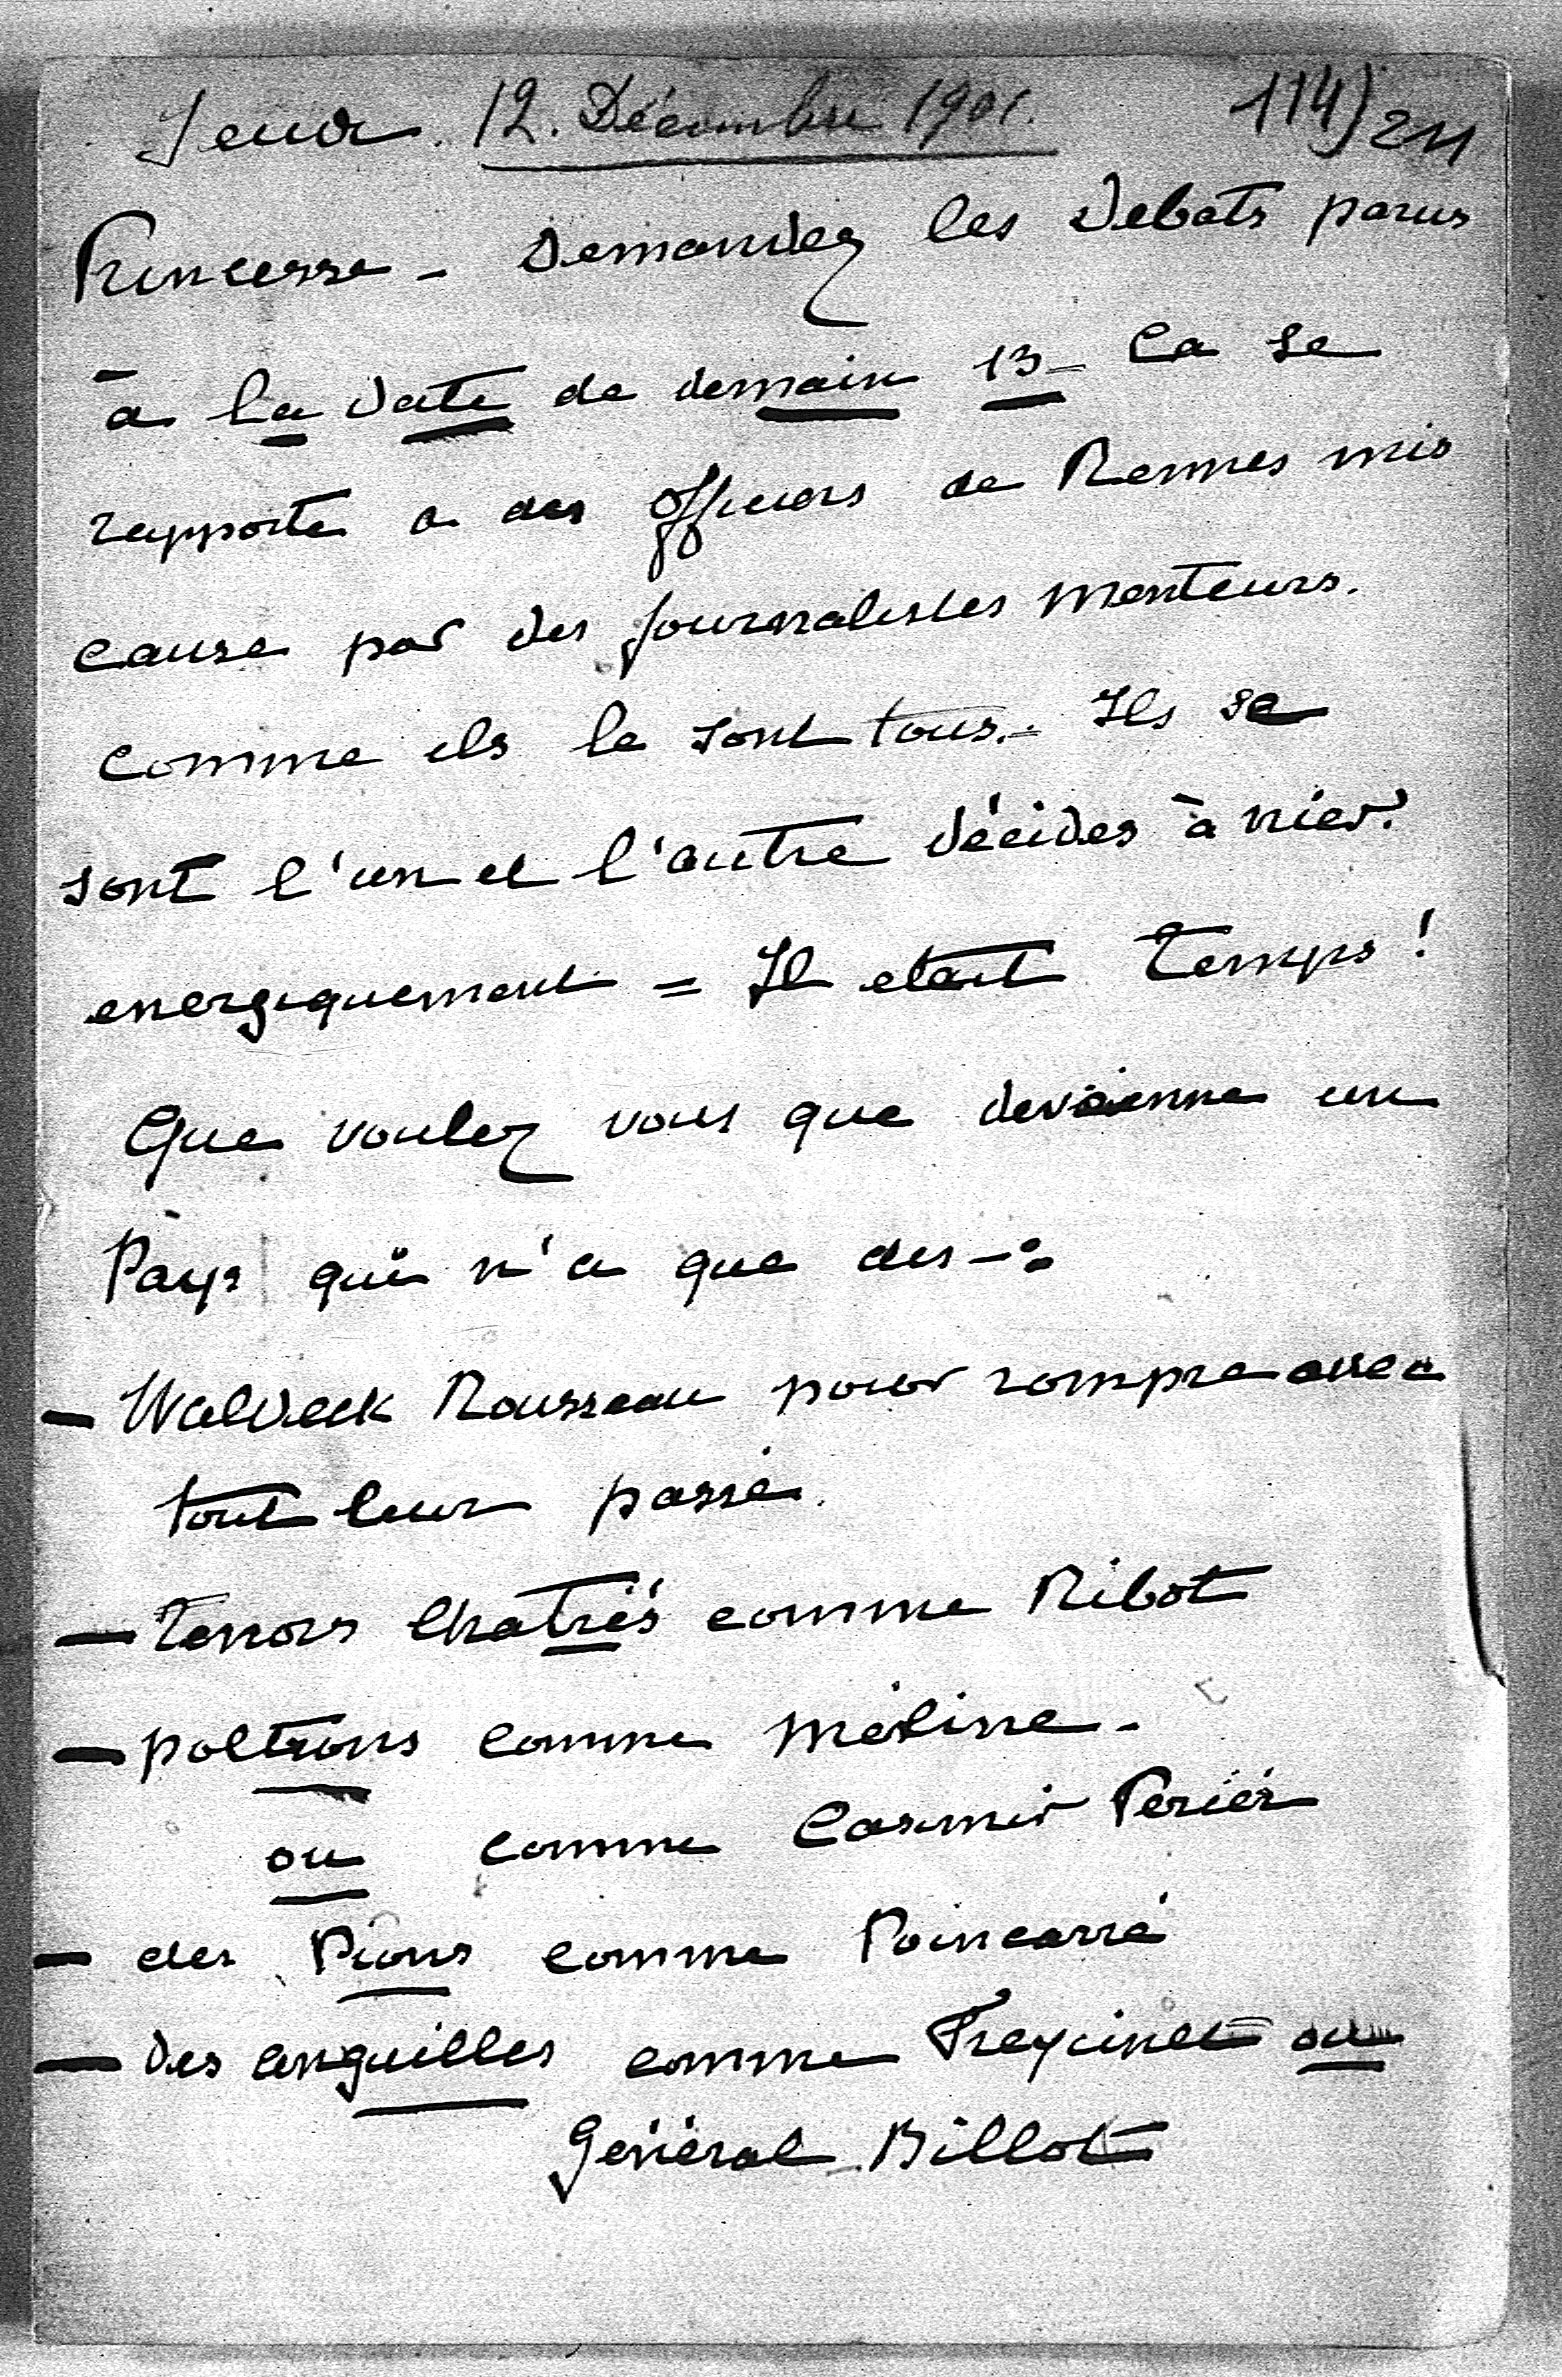 Jeudi. 12. Décembre 1901. 114) 211
Princesse - Demandez les Debats parus
à la date de demain 13 - Ca se
rapporte a des officiers de Rennes mis
cause par des journalistes menteurs.
comme ils le sont tous. - Ils se
sont l'un et l'autre décides à nier
energiquement = Il etait temps !
Que voulez vous que devienne un
Pays qui n'a que des - :
- Waldeck Rousseau pour rompre avec
tout leur passé.
- Tenors chatrés comme Ribot
- poltrons comme Méline -
ou comme Casimir Perier
- des Pions comme Poincarré
- des anguilles comme Freycinet ou
Général Billot